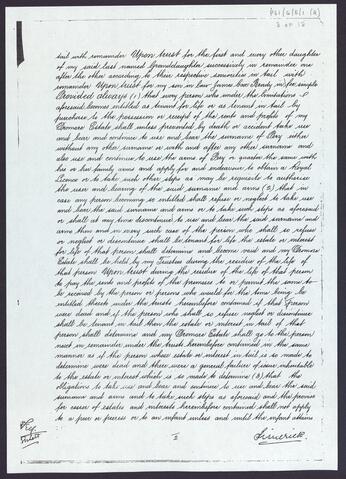 P51/6/8/1 (2)
3 OF 15
tail with remainder Upon trust for the first and every other daughter
of my said last named Granddaughter successively in remainder one
after the other according to their respective seniorities in tail with
remainder Upon trust for my son in law James Cox Brady in fee simple
Provided always (1) that every person who under the limitations
aforesaid becomes entitled as tenant for life or as tenant in tail by
purchase to the possession or receipt of the rents and profits of my
Dromore Estate shall unless prevented by death or accident take use
and bear and continue to use and bear the surname of Pery either
without any other surname or with and after any other surname and
also use and continue to use the arms of Pery or quarter the same with
his or her family arms and apply for and endeavour to obtain a Royal
Licence or to take such other steps as may be requisite to authorise
the user and bearing of the said surname and arms (2) that in
case any person becoming so entitled shall refuse or neglect to take use
and bear the said surname and arms or to take such steps as aforesaid
or shall at any time discontinue to use and bear the said surname and
arms then and in every such case if the person who shall so refuse
or neglect or discontinue shall be tenant for life the estate or interest
for life of that person shall determine and become void and my Dromore
Estate shall be held by my Trustees during the residue of the life of
that person Upon trust during the residue of the life of that person
to pay the rents and profits of the premises to or permit the same to
be received by the person or persons who would for the time being be
entitled thereto under the trusts hereinbefore contained if that person
were dead and if the person who shall so refuse neglect or discontinue
shall be tenant in tail then the estate or interest in tail of that
person shall determine and my Dromore Estate shall go to the person
next in remainder under the trusts hereinbefore contained in the same
manner as if the person whose estate or interest in tail is so made to
determine were dead and there were a general failure of issue inheritable
to the estate or interest which is so made to determine (3) that the
obligations to take use and bear and continue to use and bear the said
surname and arms and to take such steps as aforesaid and the proviso
for cesser of estates and interests hereinbefore contained shall not apply
to a peer or peeress or to an infant unless and until the infant attains
Limerick